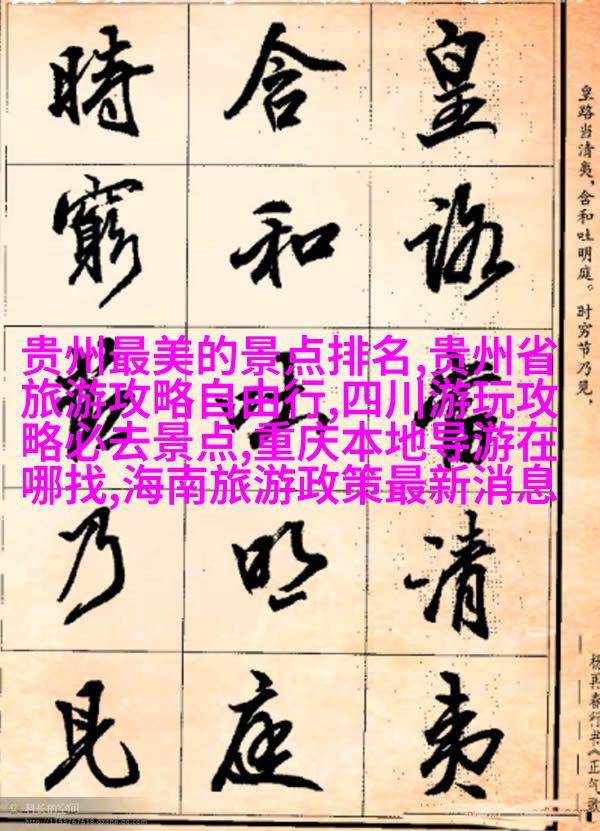 皇路當清夷
含和吐明庭
時窮節乃見
皇路当清夷,含和吐明庭。时穷节乃见,
杨再春行书《正气歌
贵州最美的景点排名,贵州省
旅游攻略自由行,四川游玩攻
略必去景点,重庆本地导游在
哪找,海南旅游政策最新消息
科长的空间